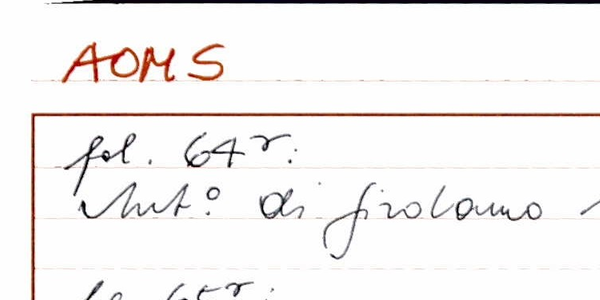 AOMS
fol. 64r:
Ant.º di girolamo
fol. 65r: